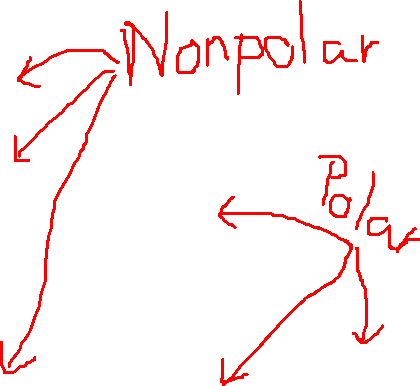 Nonpolar
Polar